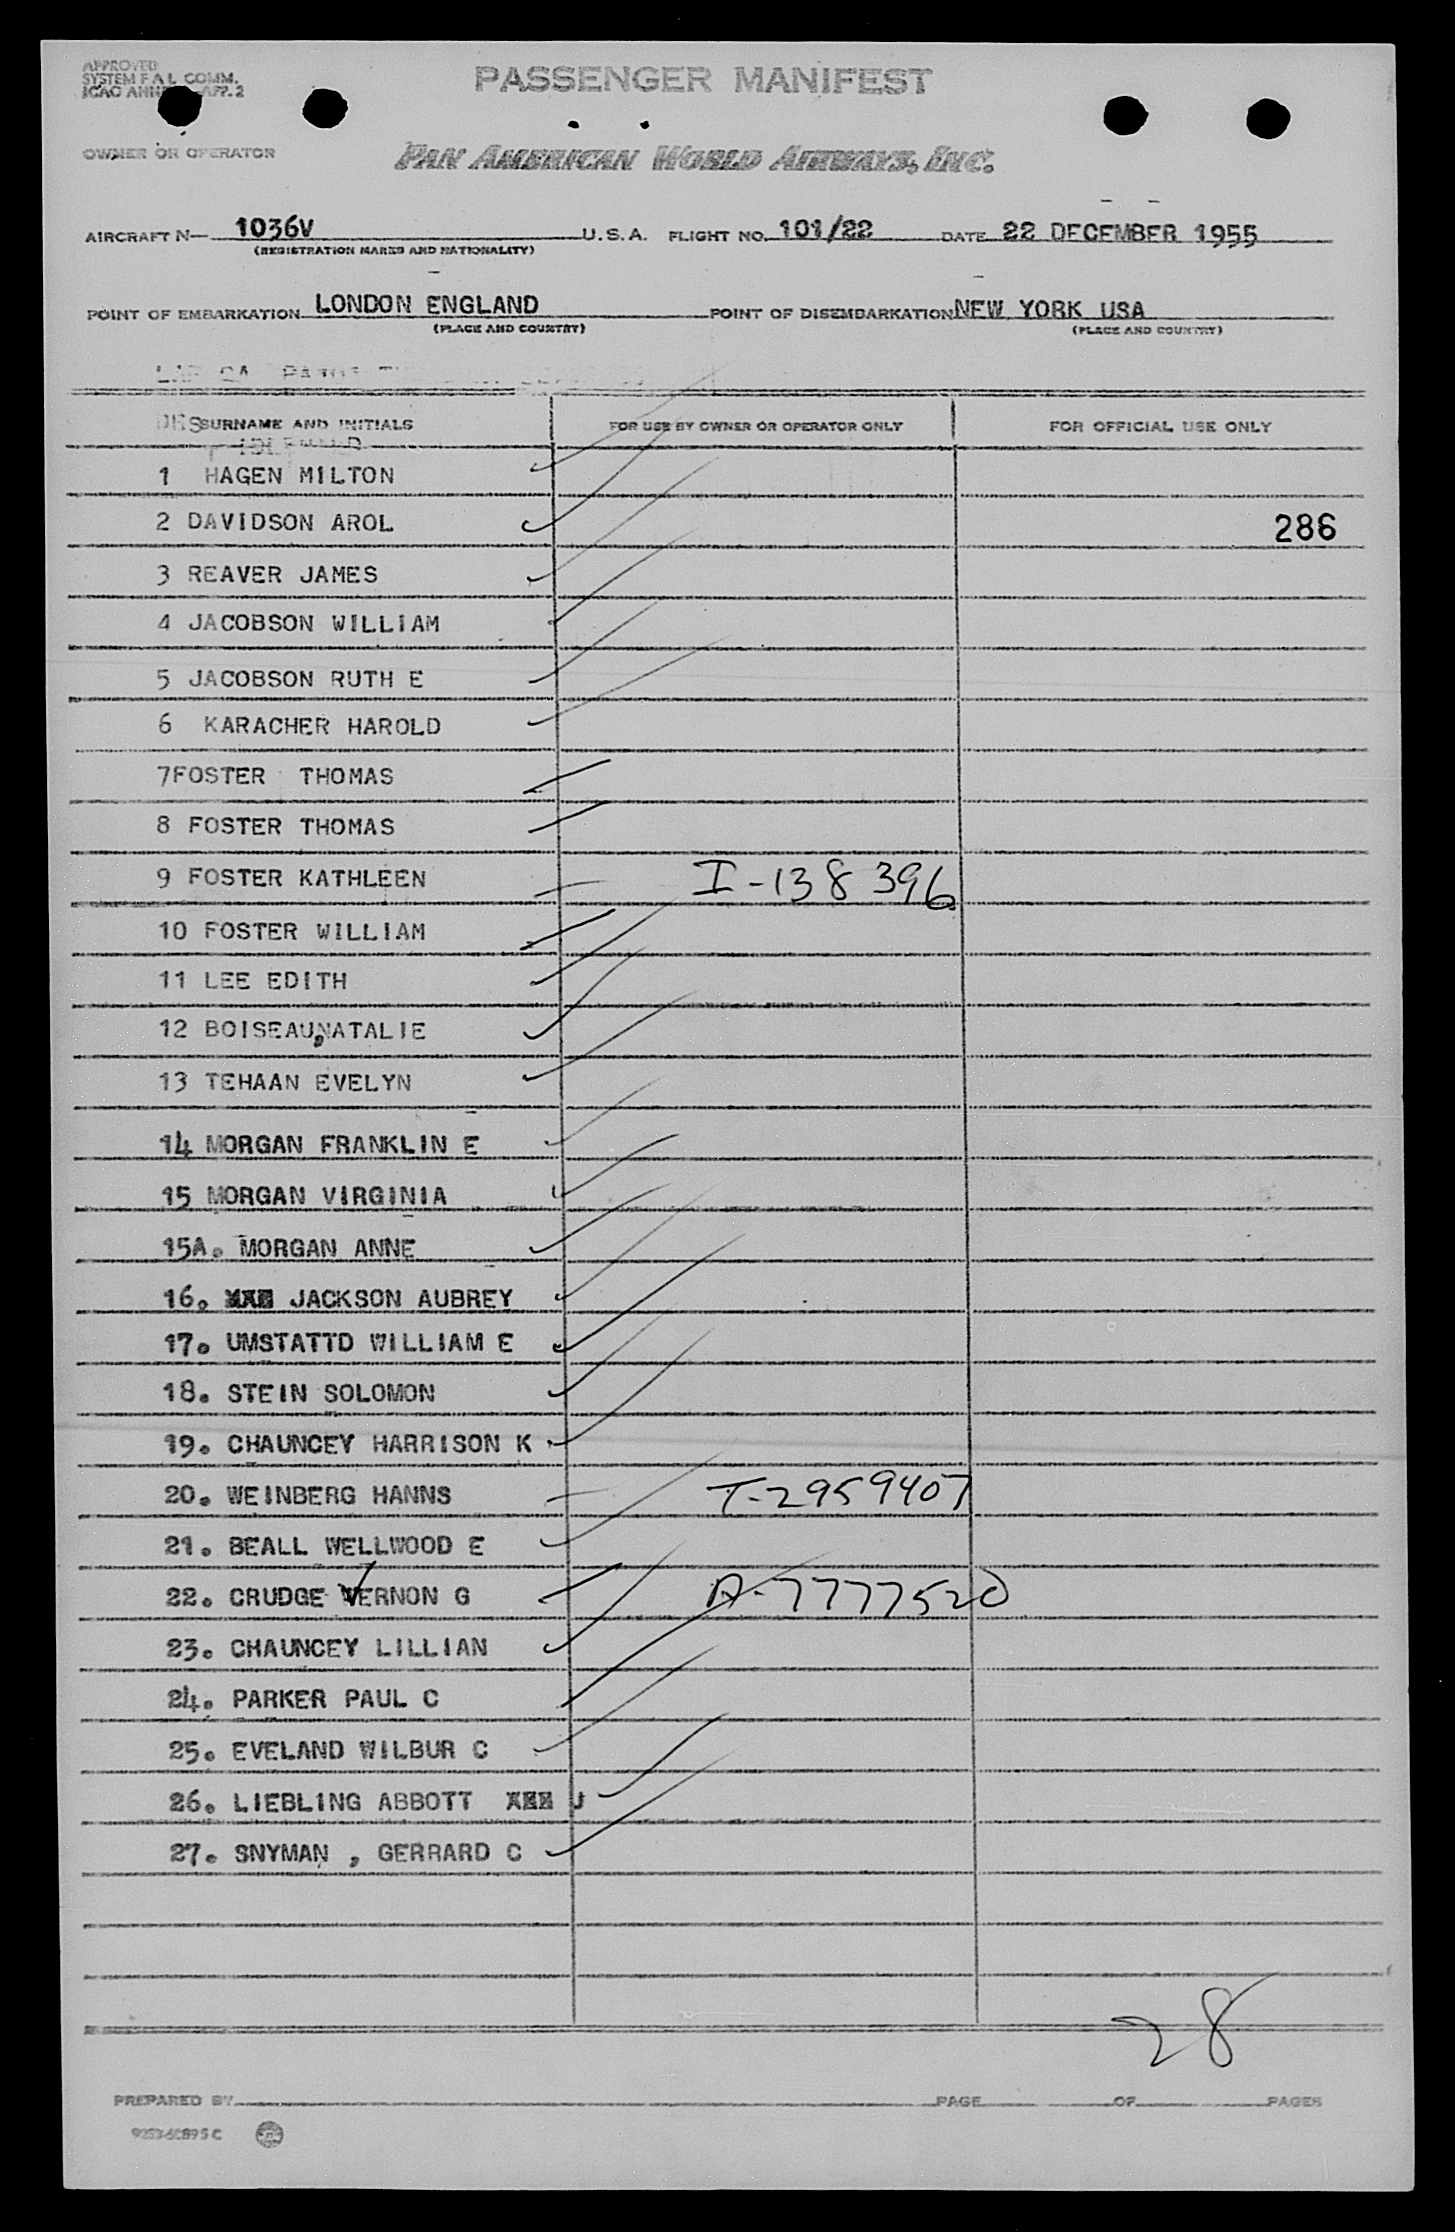 APPROVED
SYSTEM F A L COMM.
ICAO ANNEX APP. 2
PASSENGER MANIFEST
OWNER OR OPERATOR
PAN AMERICAN WORLD AIRWAYS, INC.
AIRCRAFT N— 1036V U.S.A. FLIGHT NO. 101/22 DATE 22 DECEMBER 1955
(REGISTRATION MARKS AND NATIONALITY)
POINT OF EMBARKATION LONDON ENGLAND POINT OF DISEMBARKATION NEW YORK USA
(PLACE AND COUNTRY) (PLACE AND COUNTRY)
SURNAME AND INITIALS FOR USE BY OWNER OR OPERATOR ONLY FOR OFFICIAL USE ONLY
1 HAGEN MILTON
2 DAVIDSON AROL 286
3 REAVER JAMES
4 JACOBSON WILLIAM
5 JACOBSON RUTH E
6 KARACHER HAROLD
7FOSTER THOMAS
8 FOSTER THOMAS
9 FOSTER KATHLEEN I-138 396
10 FOSTER WILLIAM
11 LEE EDITH
12 BOISEAU,NATALIE
13 TEHAAN EVELYN
14 MORGAN FRANKLIN E
15 MORGAN VIRGINIA
15A. MORGAN ANNE
16. JACKSON AUBREY
17. UMSTATTD WILLIAM E
18. STEIN SOLOMON
19. CHAUNCEY HARRISON K
20. WEINBERG HANNS T-2959407
21. BEALL WELLWOOD E
22. CRUDGE VERNON G A-7777520
23. CHAUNCEY LILLIAN
24. PARKER PAUL C
25. EVELAND WILBUR C
26. LIEBLING ABBOTT J
27. SNYMAN , GERRARD C
28
PREPARED BY PAGE OF PAGES